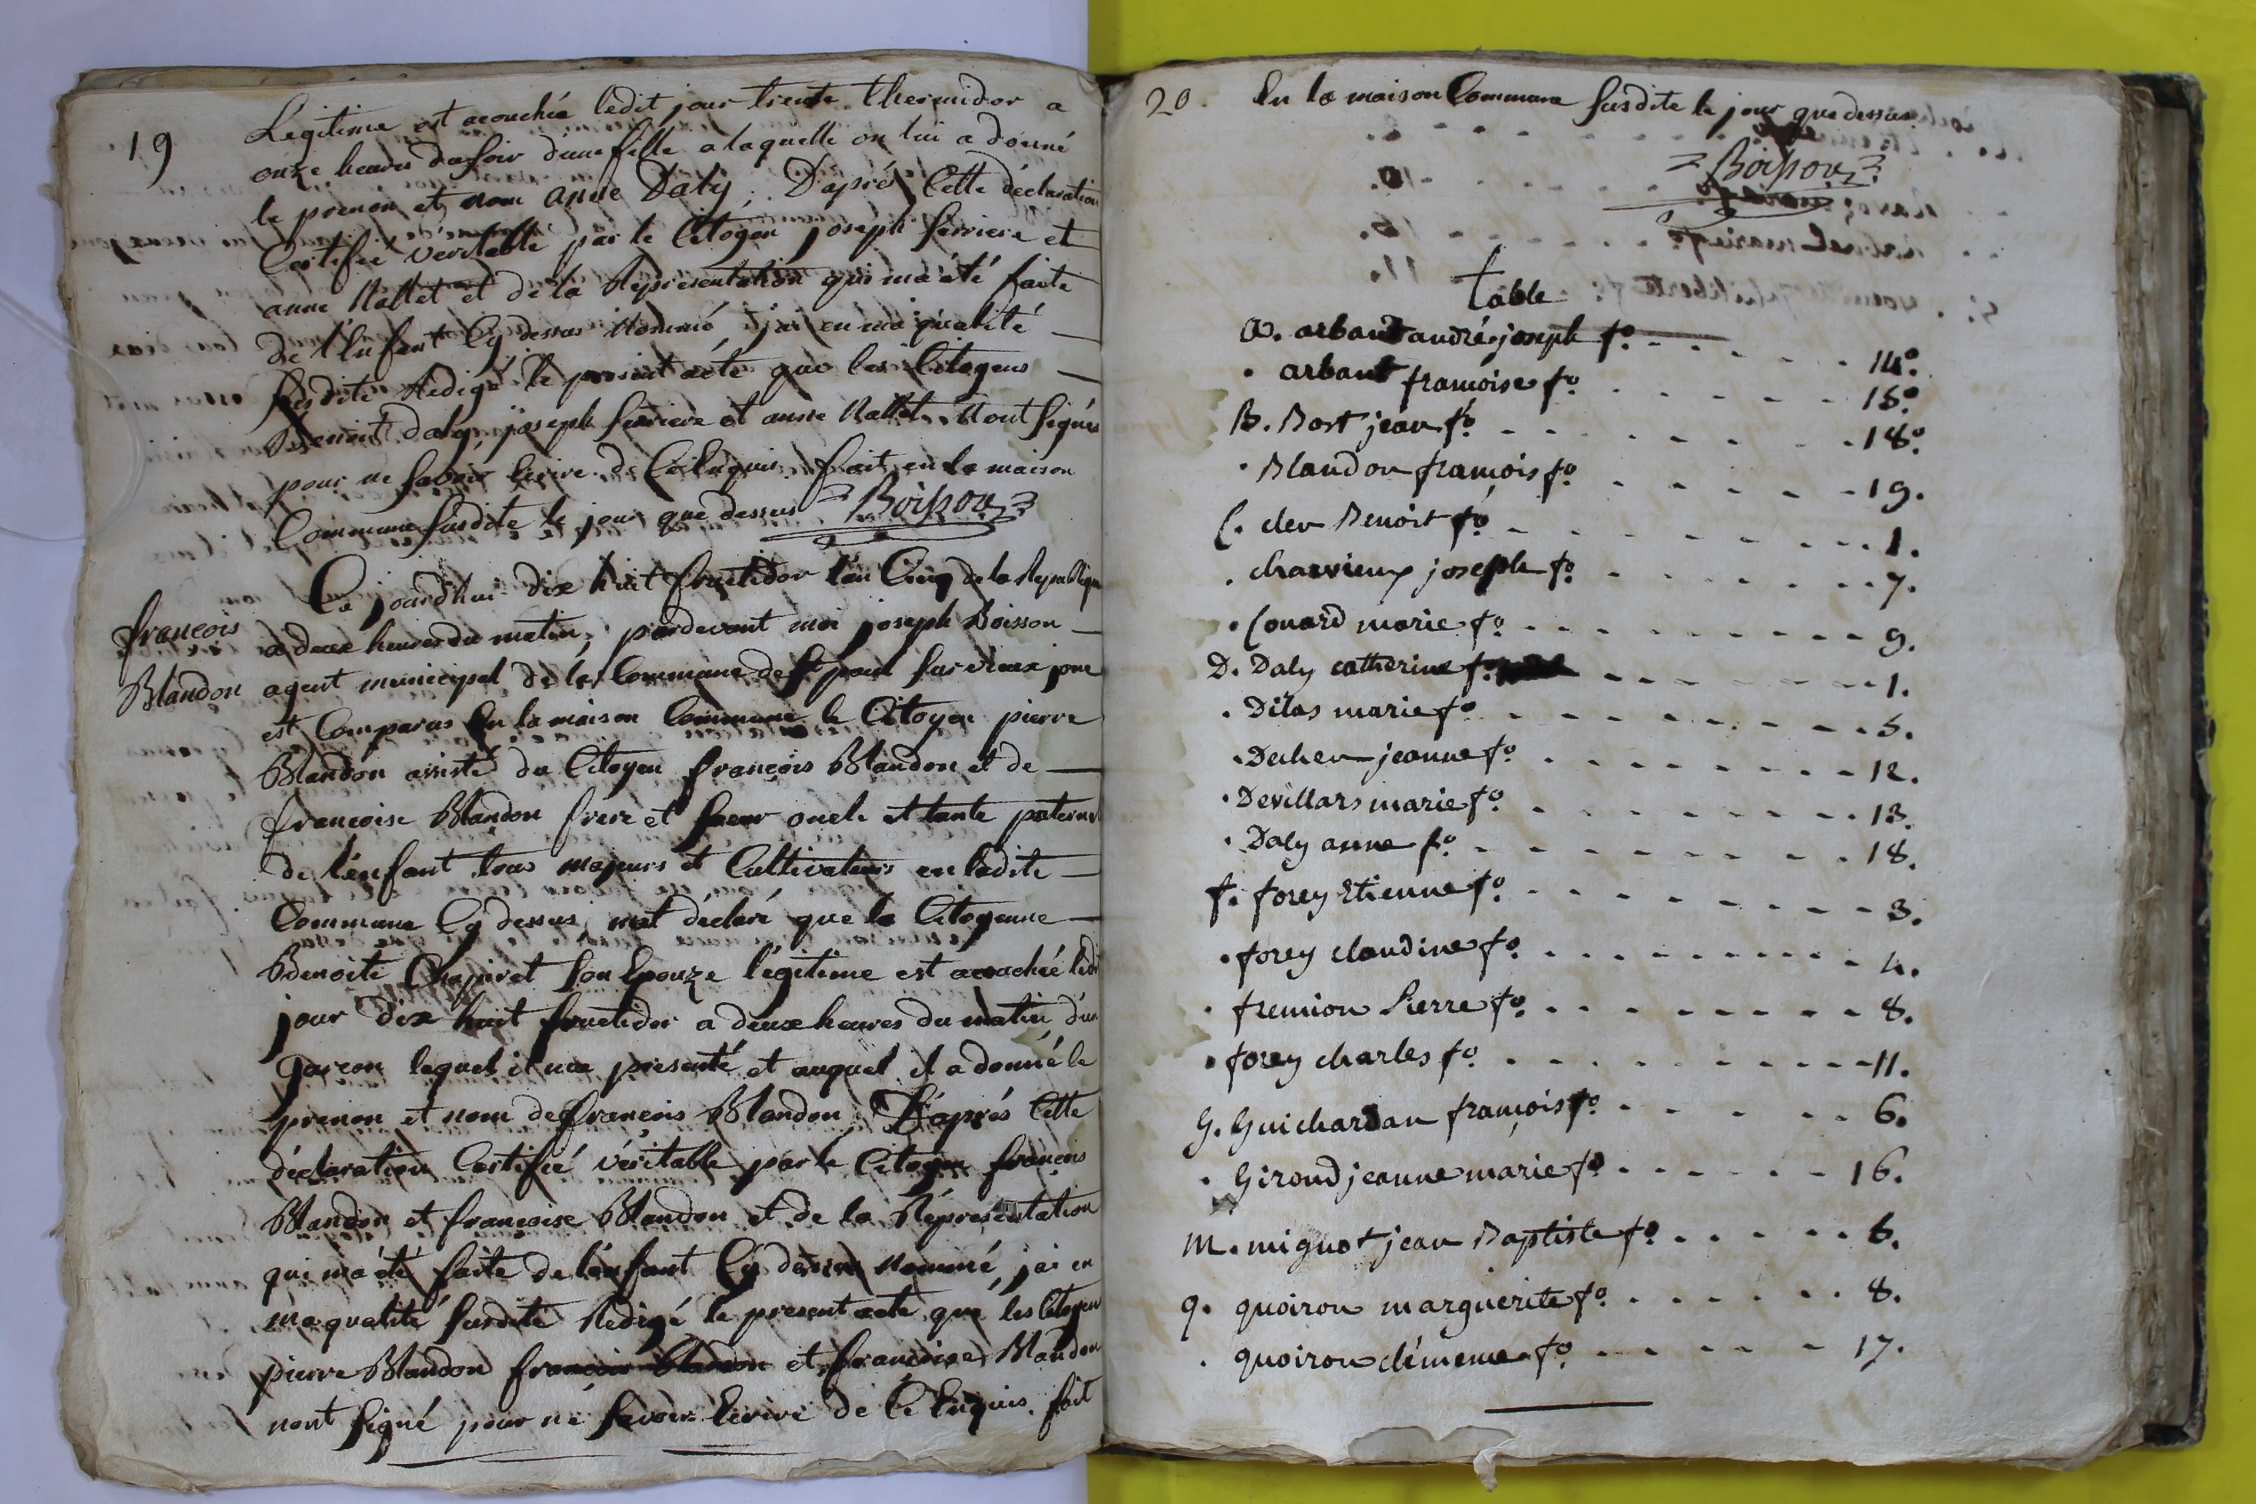 19
Legitime est acouchée ledit jour trente thermidor a
onze heures du soir d'une fille a laquelle on lui a donné
le prenon et nom anne Daly, D'aprés Cette déclaration
Certifié véritable par le Citoyen joseph ferriere et
anne Rallet et de la Représentation qui ma été faite
de l'Enfant Cy dessus Nommé, j'ai en ma qualité
susdite Redigé le present acte que les Citoyens
Benoit daly, joseph ferriere et anne Rallet n'ont signés
pour ne savoir Ecrire de Ce Enquis. fait en la maison
Commune susdite le jour que dessus Boisson
françois
Blandon
Ce jourd'hui dix huit fructidor l'an Cinq de la Republique
a deux heures du matin, pardevant moi joseph Boisson
agent municipal de la Commune de St paul sur vieux jonc
est Comparus En la maison Commune le Citoyen pierre
Blandon assisté du Citoyen françois Blandon et de
francoise Blandon frere et soeur oncle et tante paternel
de l'énfant tous majeurs et Cultivateurs en ladite
Commune Cy dessus, mat déclaré que la Citoyenne
Benoite Chapiret son Epouze légitime est acouchée ledit
jour dix huit fructidor a deux heures du matin d'un
garçon lequel il ma présenté et auquel il a donné le
prenon et nom de françois Blandon. D'aprés Cette
déclaration Certifié véritable par le Citoyen françois
Blandon et françoise Blandon et de la Réprésentation
qui ma été faite de l'énfant Cy dessus Nommé j'ai en
ma qualité susdite Redigé le present acte que les Citoyens
pierre Blandon francois Blandon et françoise Blandon
nont signé pour ne savoir Ecrire de Ce Enquis. fait
20. En la maison Commune susdite le jour que dessus.
Boisson
table
a. arbant andré joseph fo. 14o.
. arbant françoise fo. 15o.
B. Bort jean fo. 18o.
. Blandon françois fo. 19.
C. cler Benoit fo. 1.
. charvieux joseph fo. 7.
. Conard marie fo. 9.
D. Daly catherine fo. 1.
. Dilas marie fo. 5.
. Decher jeanne fo. 12.
. Devillars marie fo. 13.
. Daly anne fo. 18.
f. forey Etienne fo. 3.
. forey claudine fo. 4.
. fremion Pierre fo. 8.
. forey charles fo. 11.
G. Guichardan françois fo. 6.
. Giroud jeanne marie fo. 16.
M. mignot jean Baptiste fo. 6.
q. quoiron marguerite fo. 8.
. quoiron clémence fo. 17.